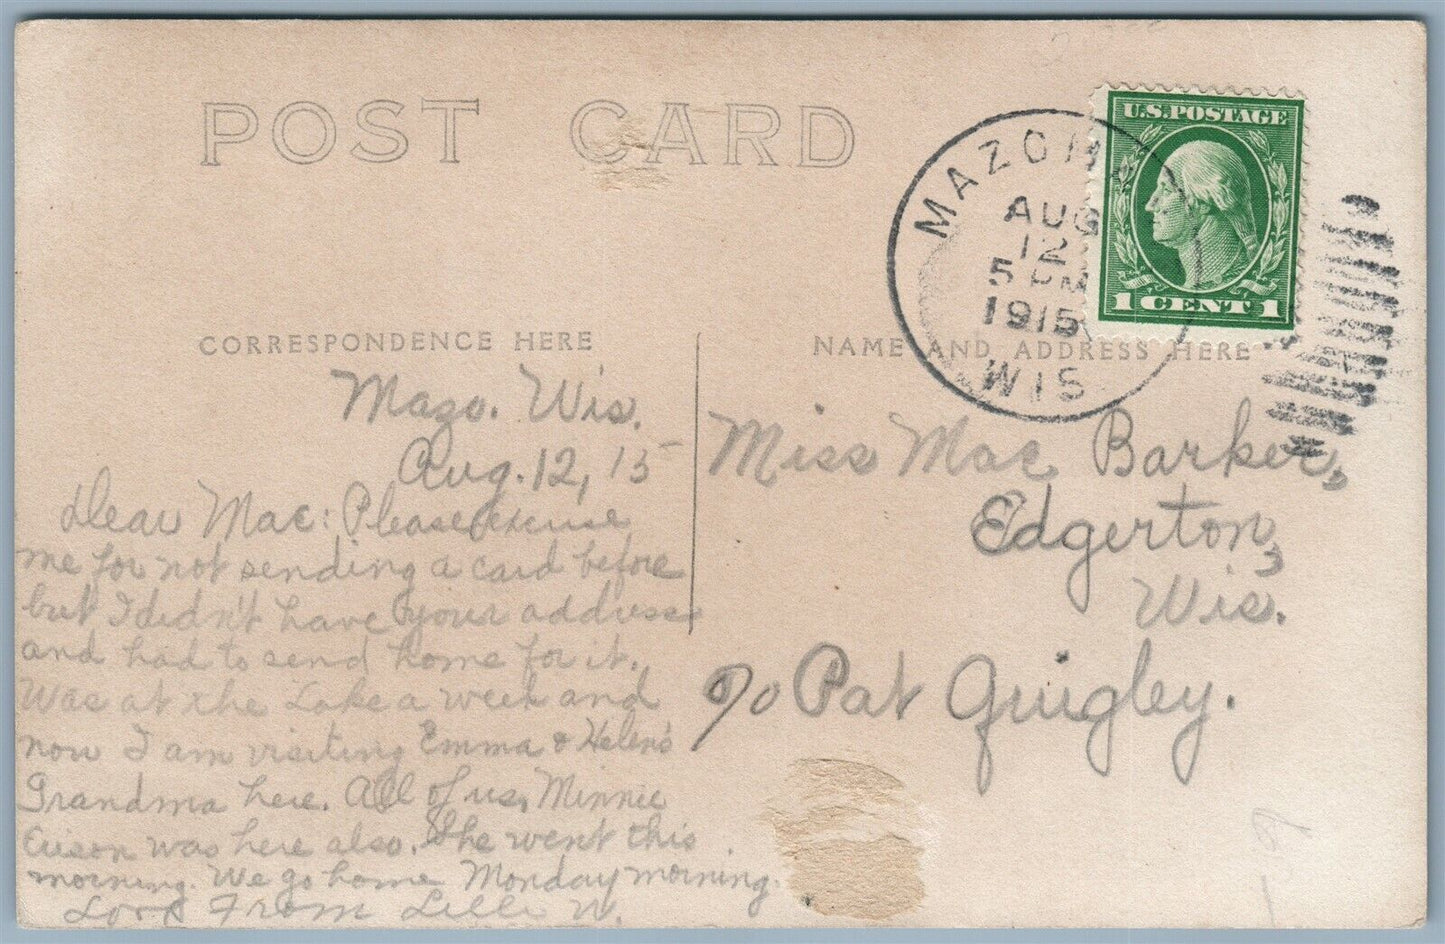 POST CARD
MAZOM
AUG
12
5 PM
1915
WIS
U.S. POSTAGE
1 CENT 1
CORRESPONDENCE HERE
NAME AND ADDRESS HERE
Mazo. Wis.
Aug. 12, 15
Dear Mae: Please excuse
me for not sending a card before
but I didn't have your address
and had to send home for it.
Was at the Lake a week and
now I am visiting Emma & Helen's
Grandma here. All of us, Minnie
was here also. She went this
morning. We go home Monday morning.
Love From W.
Miss Mae Barker,
Edgerton,
Wis.
c/o Pat Quigley.